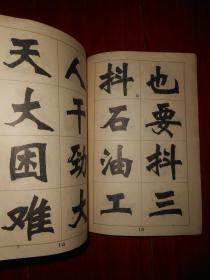 也要抖三
抖石油工
13
人干劲大
天大困难
14